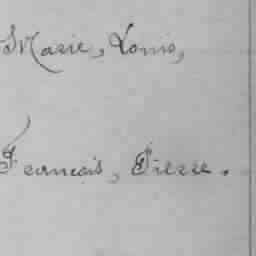 Marie, Louis,
François, Pierre.